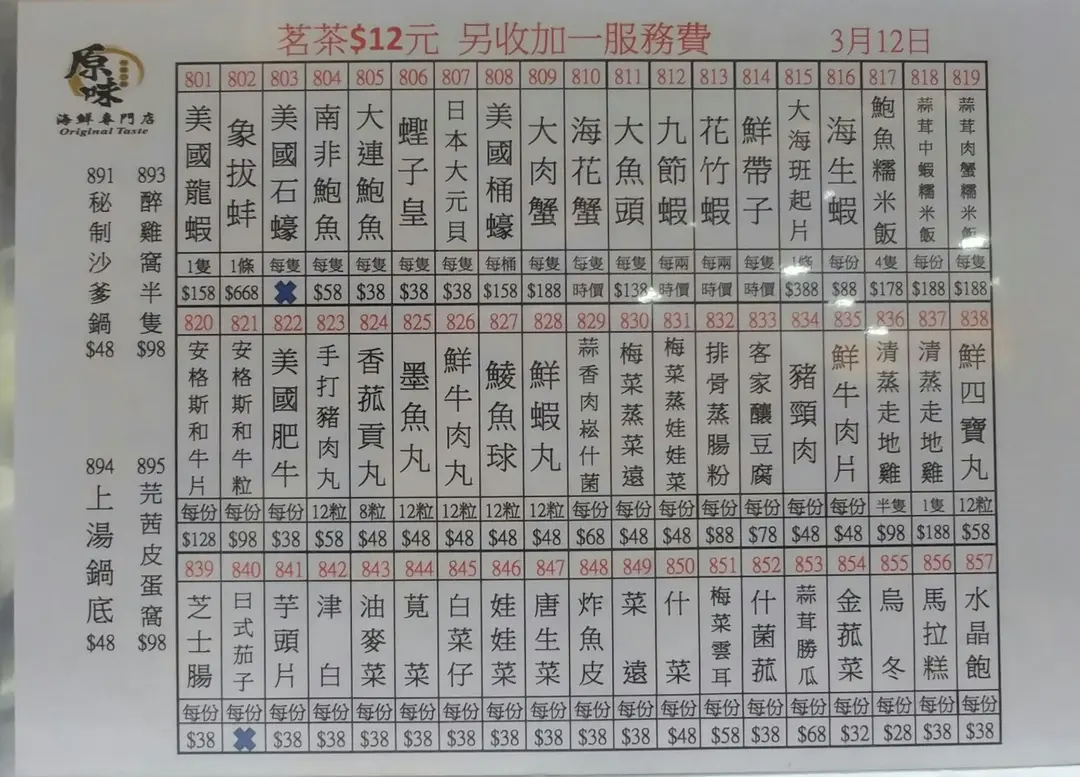 茗茶$12元 另收加一服務費 3月12日
原味
海鮮專門店
Original Taste
891 秘制沙爹鍋 $48
893 醉雞窩半隻 $98
894 上湯鍋底 $48
895 芫茜皮蛋窩 $98
801 802 803 804 805 806 807 808 809 810 811 812 813 814 815 816 817 818 819
美國龍蝦 象拔蚌 美國石蠔 南非鮑魚 大連鮑魚 蟶子皇 日本大元貝 美國桶蠔 大肉蟹 海花蟹 大魚頭 九節蝦 花竹蝦 鮮帶子 大海班起片 海生蝦 鮑魚糯米飯 蒜茸中蝦糯米飯 蒜茸肉蟹糯米飯
1隻 1條 每隻 每隻 每隻 每隻 每隻 每桶 每隻 每隻 每隻 每兩 每兩 每隻 1條 每份 4隻 每份 每隻
$158 $668 ✖ $58 $38 $38 $38 $158 $188 時價 $138 時價 時價 時價 $388 $88 $178 $188 $188
820 821 822 823 824 825 826 827 828 829 830 831 832 833 834 835 836 837 838
安格斯和牛片 安格斯和牛粒 美國肥牛 手打豬肉丸 香菰貢丸 墨魚丸 鮮牛肉丸 鯪魚球 鮮蝦丸 蒜香肉崧什菌 梅菜蒸菜遠 梅菜蒸娃娃菜 排骨蒸腸粉 客家釀豆腐 豬頸肉 鮮牛肉片 清蒸走地雞 清蒸走地雞 鮮四寶丸
每份 每份 每份 12粒 8粒 12粒 12粒 12粒 12粒 每份 每份 每份 每份 每份 每份 每份 半隻 1隻 12粒
$128 $98 $38 $58 $48 $48 $48 $48 $48 $68 $48 $48 $88 $78 $48 $48 $98 $188 $58
839 840 841 842 843 844 845 846 847 848 849 850 851 852 853 854 855 856 857
芝士腸 日式茄子 芋頭片 津白 油麥菜 莧菜 白菜仔 娃娃菜 唐生菜 炸魚皮 菜遠 什菜 梅菜雲耳 什菌菰 蒜茸勝瓜 金菰菜 烏冬 馬拉糕 水晶飽
每份 每份 每份 每份 每份 每份 每份 每份 每份 每份 每份 每份 每份 每份 每份 每份 每份 每份 每份
$38 ✖ $38 $38 $38 $38 $38 $38 $38 $38 $38 $48 $58 $38 $68 $32 $28 $38 $38